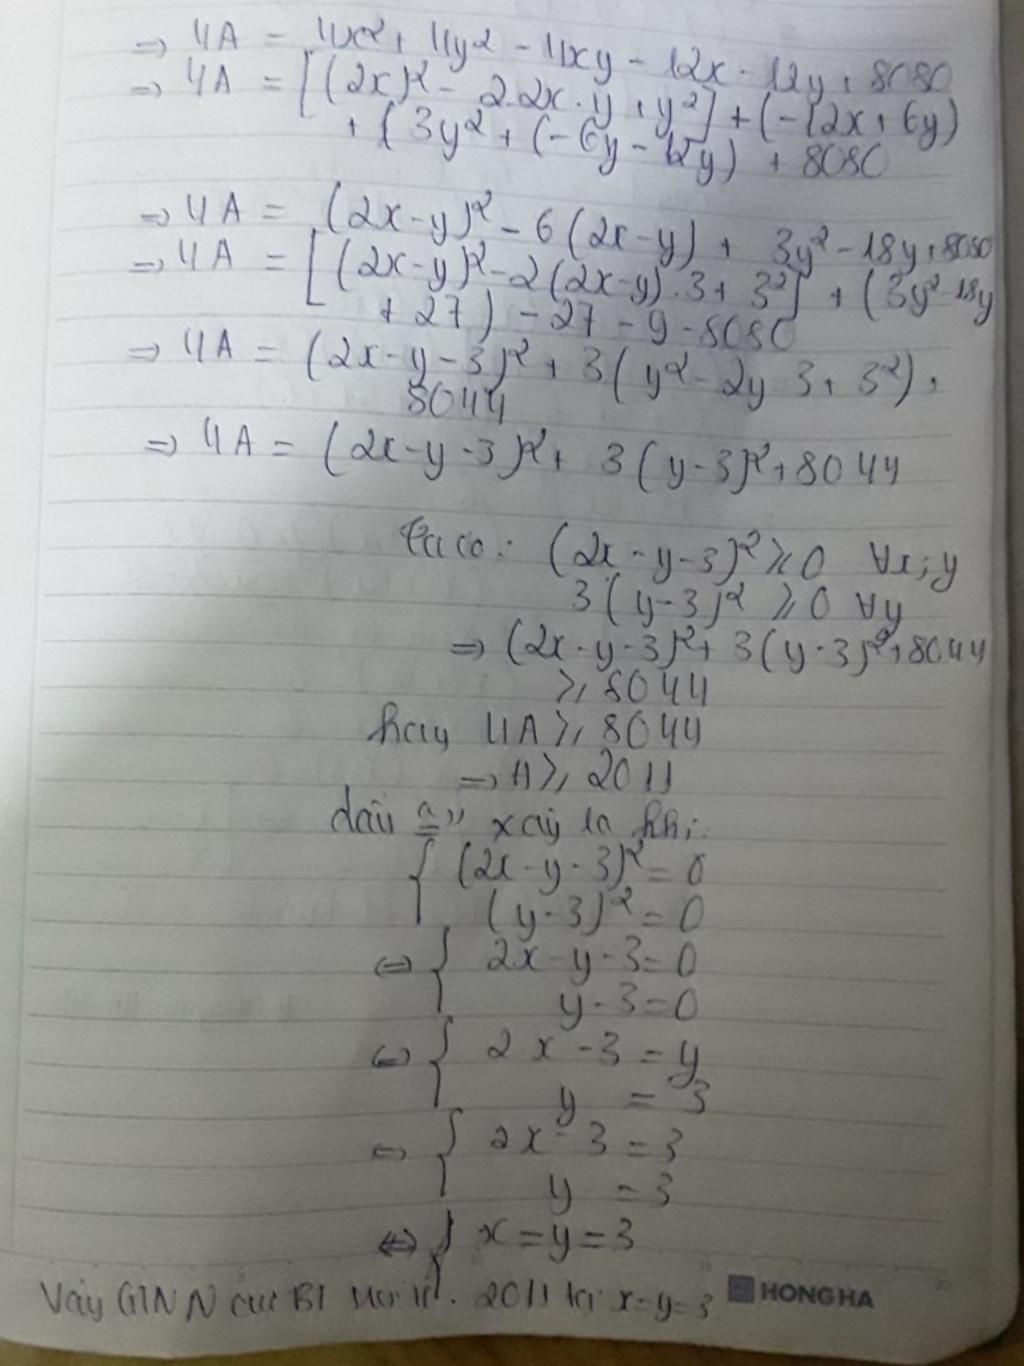 => 4A = 4x² + 4y² - 4xy - 12x - 12y + 8080
=> 4A = [(2x)² - 2.2x.y + y²] + (-12x + 6y)
+ (3y² + (-6y - 12y) + 8080
=> 4A = (2x-y)² - 6(2x-y) + 3y² - 18y + 8080
=> 4A = [(2x-y)² - 2(2x-y).3 + 3²] + (3y² - 18y
+ 27) - 27 - 9 - 8080
=> 4A = (2x-y-3)² + 3(y² - 2y 3 + 3²) +
8044
=> 4A = (2x-y-3)² + 3(y-3)² + 8044
Ta có: (2x-y-3)² ⩾ 0 ∀x;y
3(y-3)² ⩾ 0 ∀y
=> (2x-y-3)² + 3(y-3)² + 8044
⩾ 8044
hay 4A ⩾ 8044
=> A ⩾ 2011
dấu "=" xảy ra khi:
{ (2x-y-3)² = 0
(y-3)² = 0
<=> { 2x-y-3=0
y-3=0
<=> { 2x-3=y
y = 3
<=> { 2x-3=3
y = 3
<=> { x=y=3
Vậy GTNN của BT 2011 tại x=y=3
HONG HA